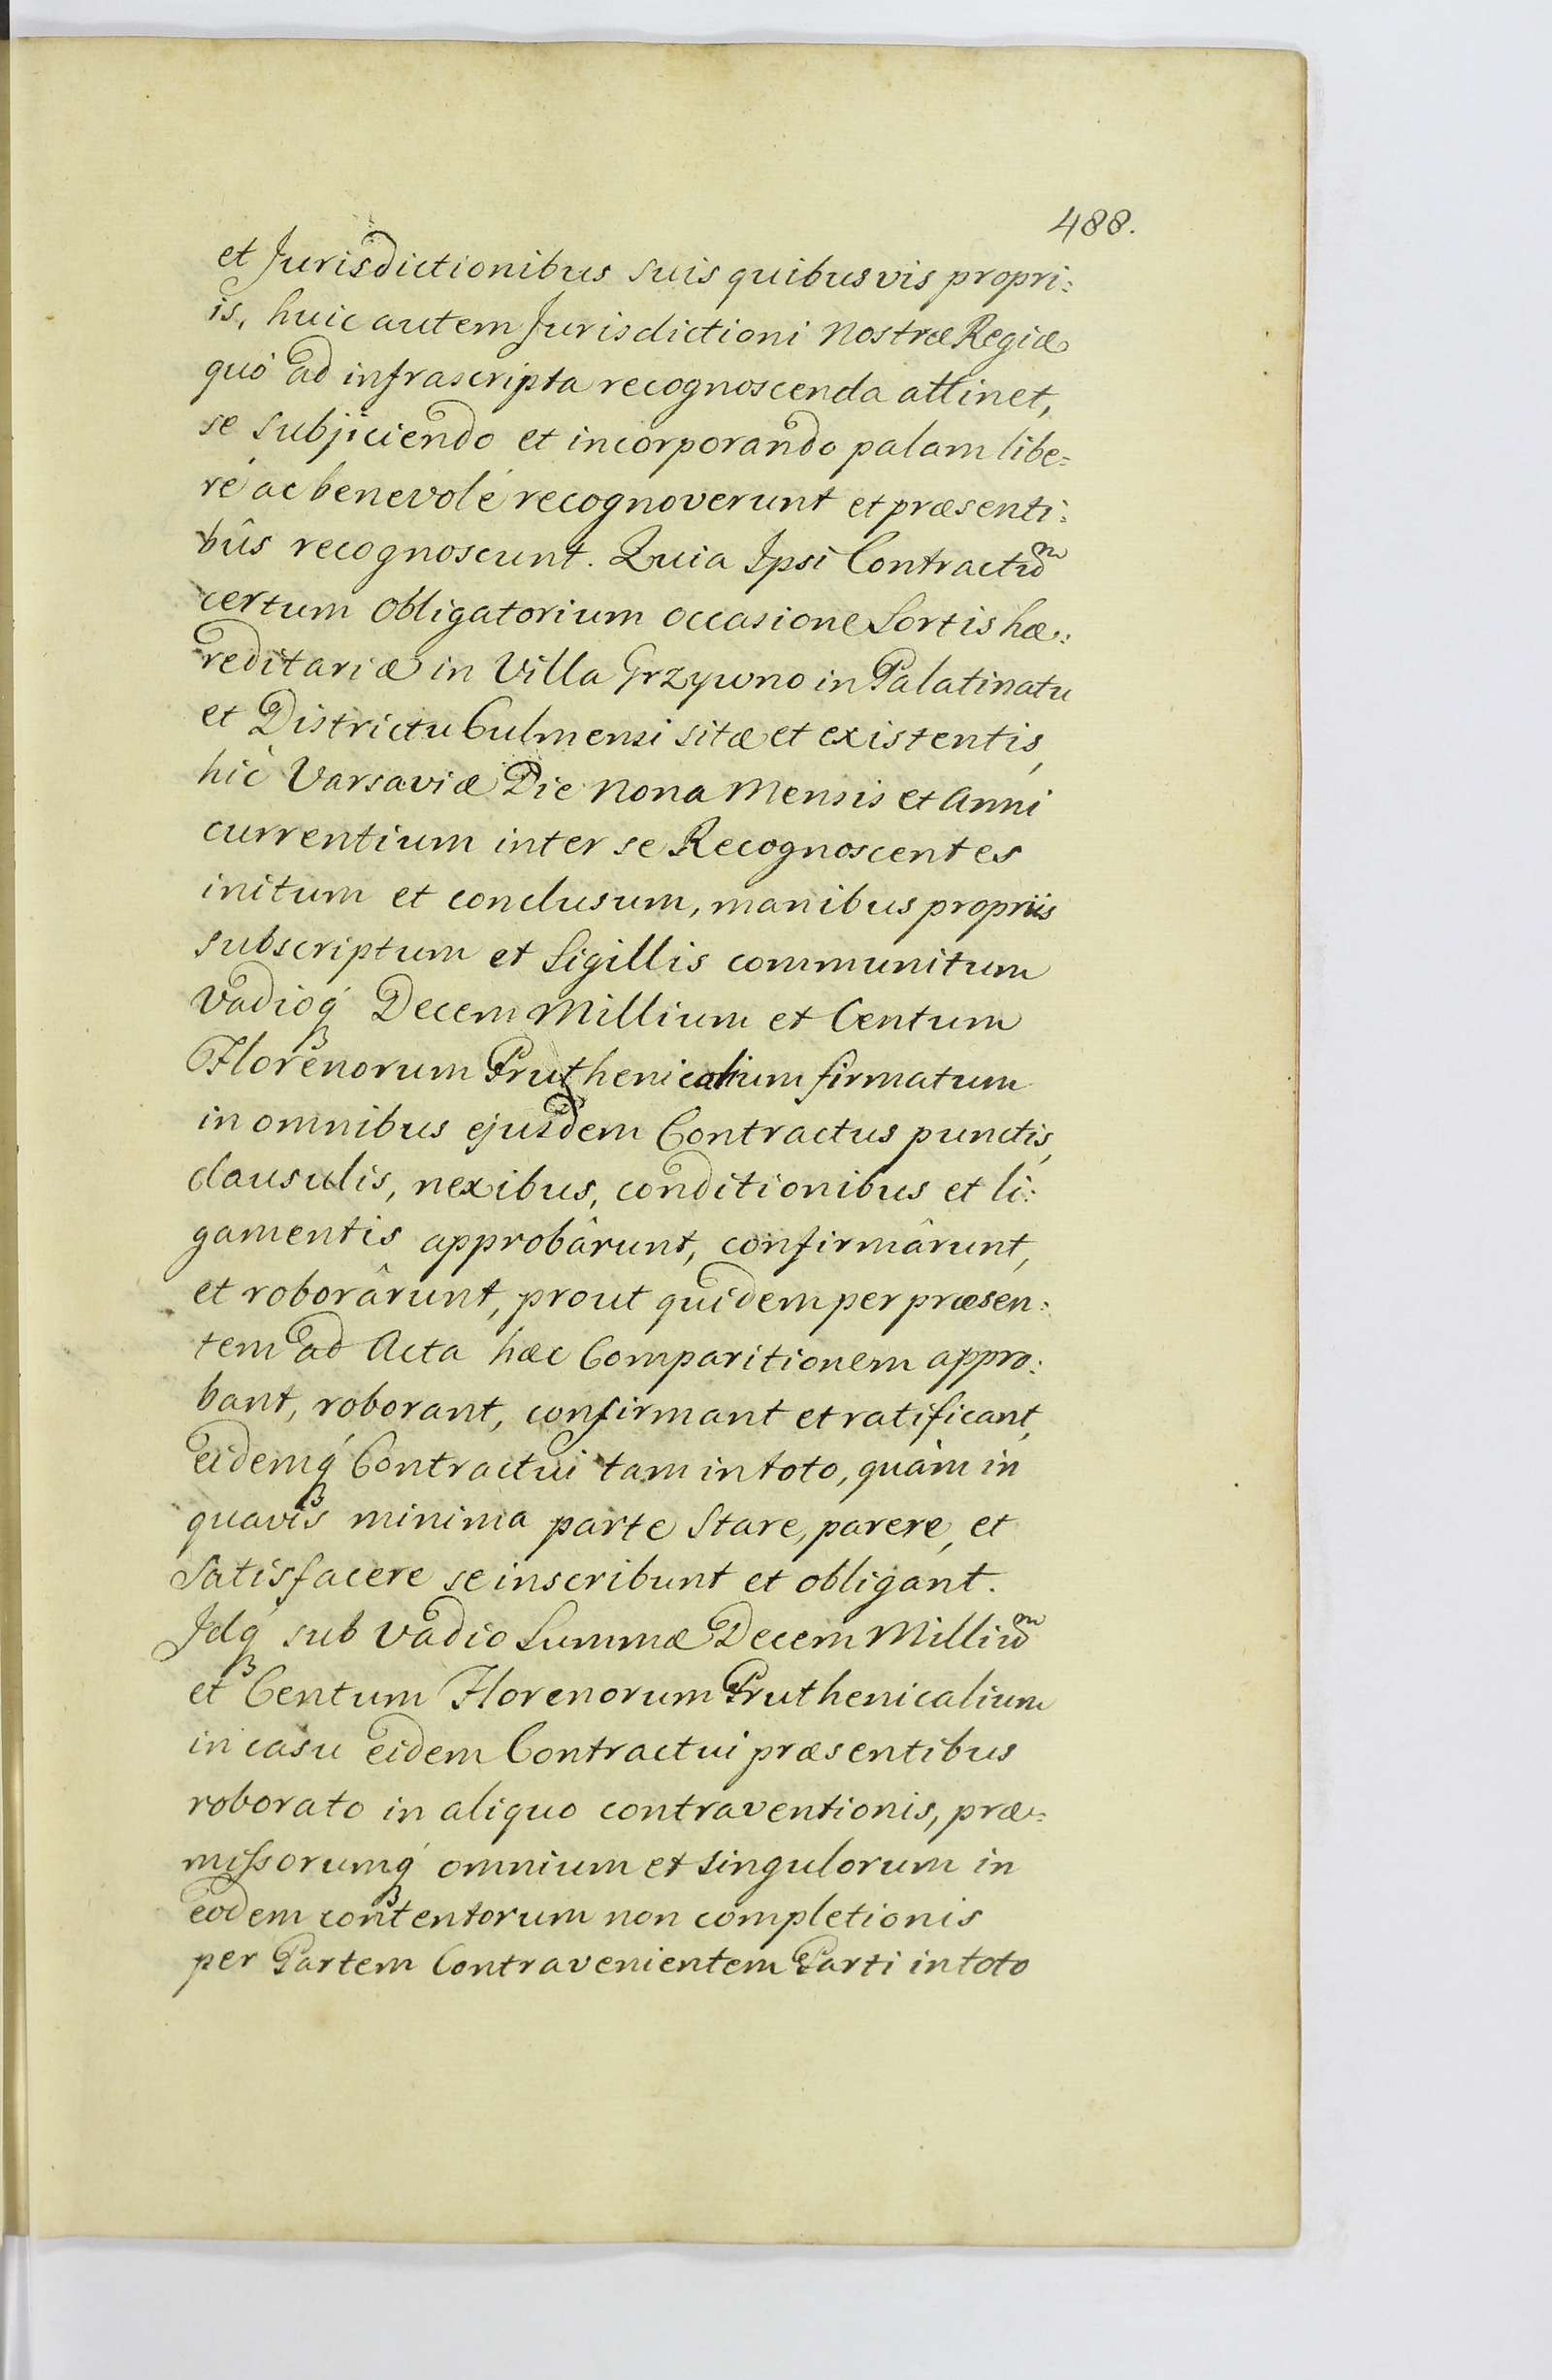 488.
et Jurisdictionibus suis quibusvis propri:
is, huic autem Jurisdictioni Nostræ Regiæ
quò ad infrascripta recognoscenda attinet,
se subjiciendo et incorporando palam libe=
ré ac benevolé recognoverunt et præsenti:
bûs recognoscunt. Quia Ipsi Contractuᵐ
certum obligatorium occasione Sortis hæ:
reditariæ in Villa Grzywno in Palatinatu
et Districtu Culmensi sitæ et existentis,
hîc Varsaviæ Die Nona Mensis et Anni
currentium inter se Recognoscentes
initum et conclusum, manibus propriis
subscriptum et Sigillis communitum
Vadioq́ Decem Millium et Centum
Florenorum Pruthenicalium firmatum
in omnibus ejusdem Contractus punctis,
clausulis, nexibus, conditionibus et li:
gamentis approbârunt, confirmârunt,
et roborârunt, prout quidem per præsen:
tem ad Acta hæc Comparitionem appro:
bant, roborant, confirmant et ratificant,
eidemq́ Contractui tam in toto, quàm in
quavis minima parte Stare, parere, et
Satisfacere se inscribunt et obligant.
Idq́ sub Vadio Summæ Decem Milliuᵐ
et Centum Florenorum Pruthenicalium
in casu eidem Contractui præsentibus
roborato in aliquo contraventionis, præ=
missorumq́ omnium et singulorum in
eodem contentorum non completionis
per Partem Contravenientem Parti in toto